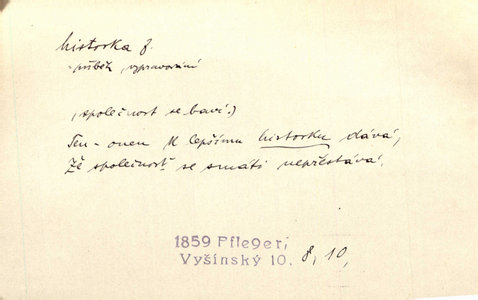 historka f.
- příběh, vypravování
(společnost se baví:)
Ten - onen k lepšímu historku dává,
že společnosť se smáti nepřestává.
1859 Pfleger,
Vyšínský 10. 8, 10,